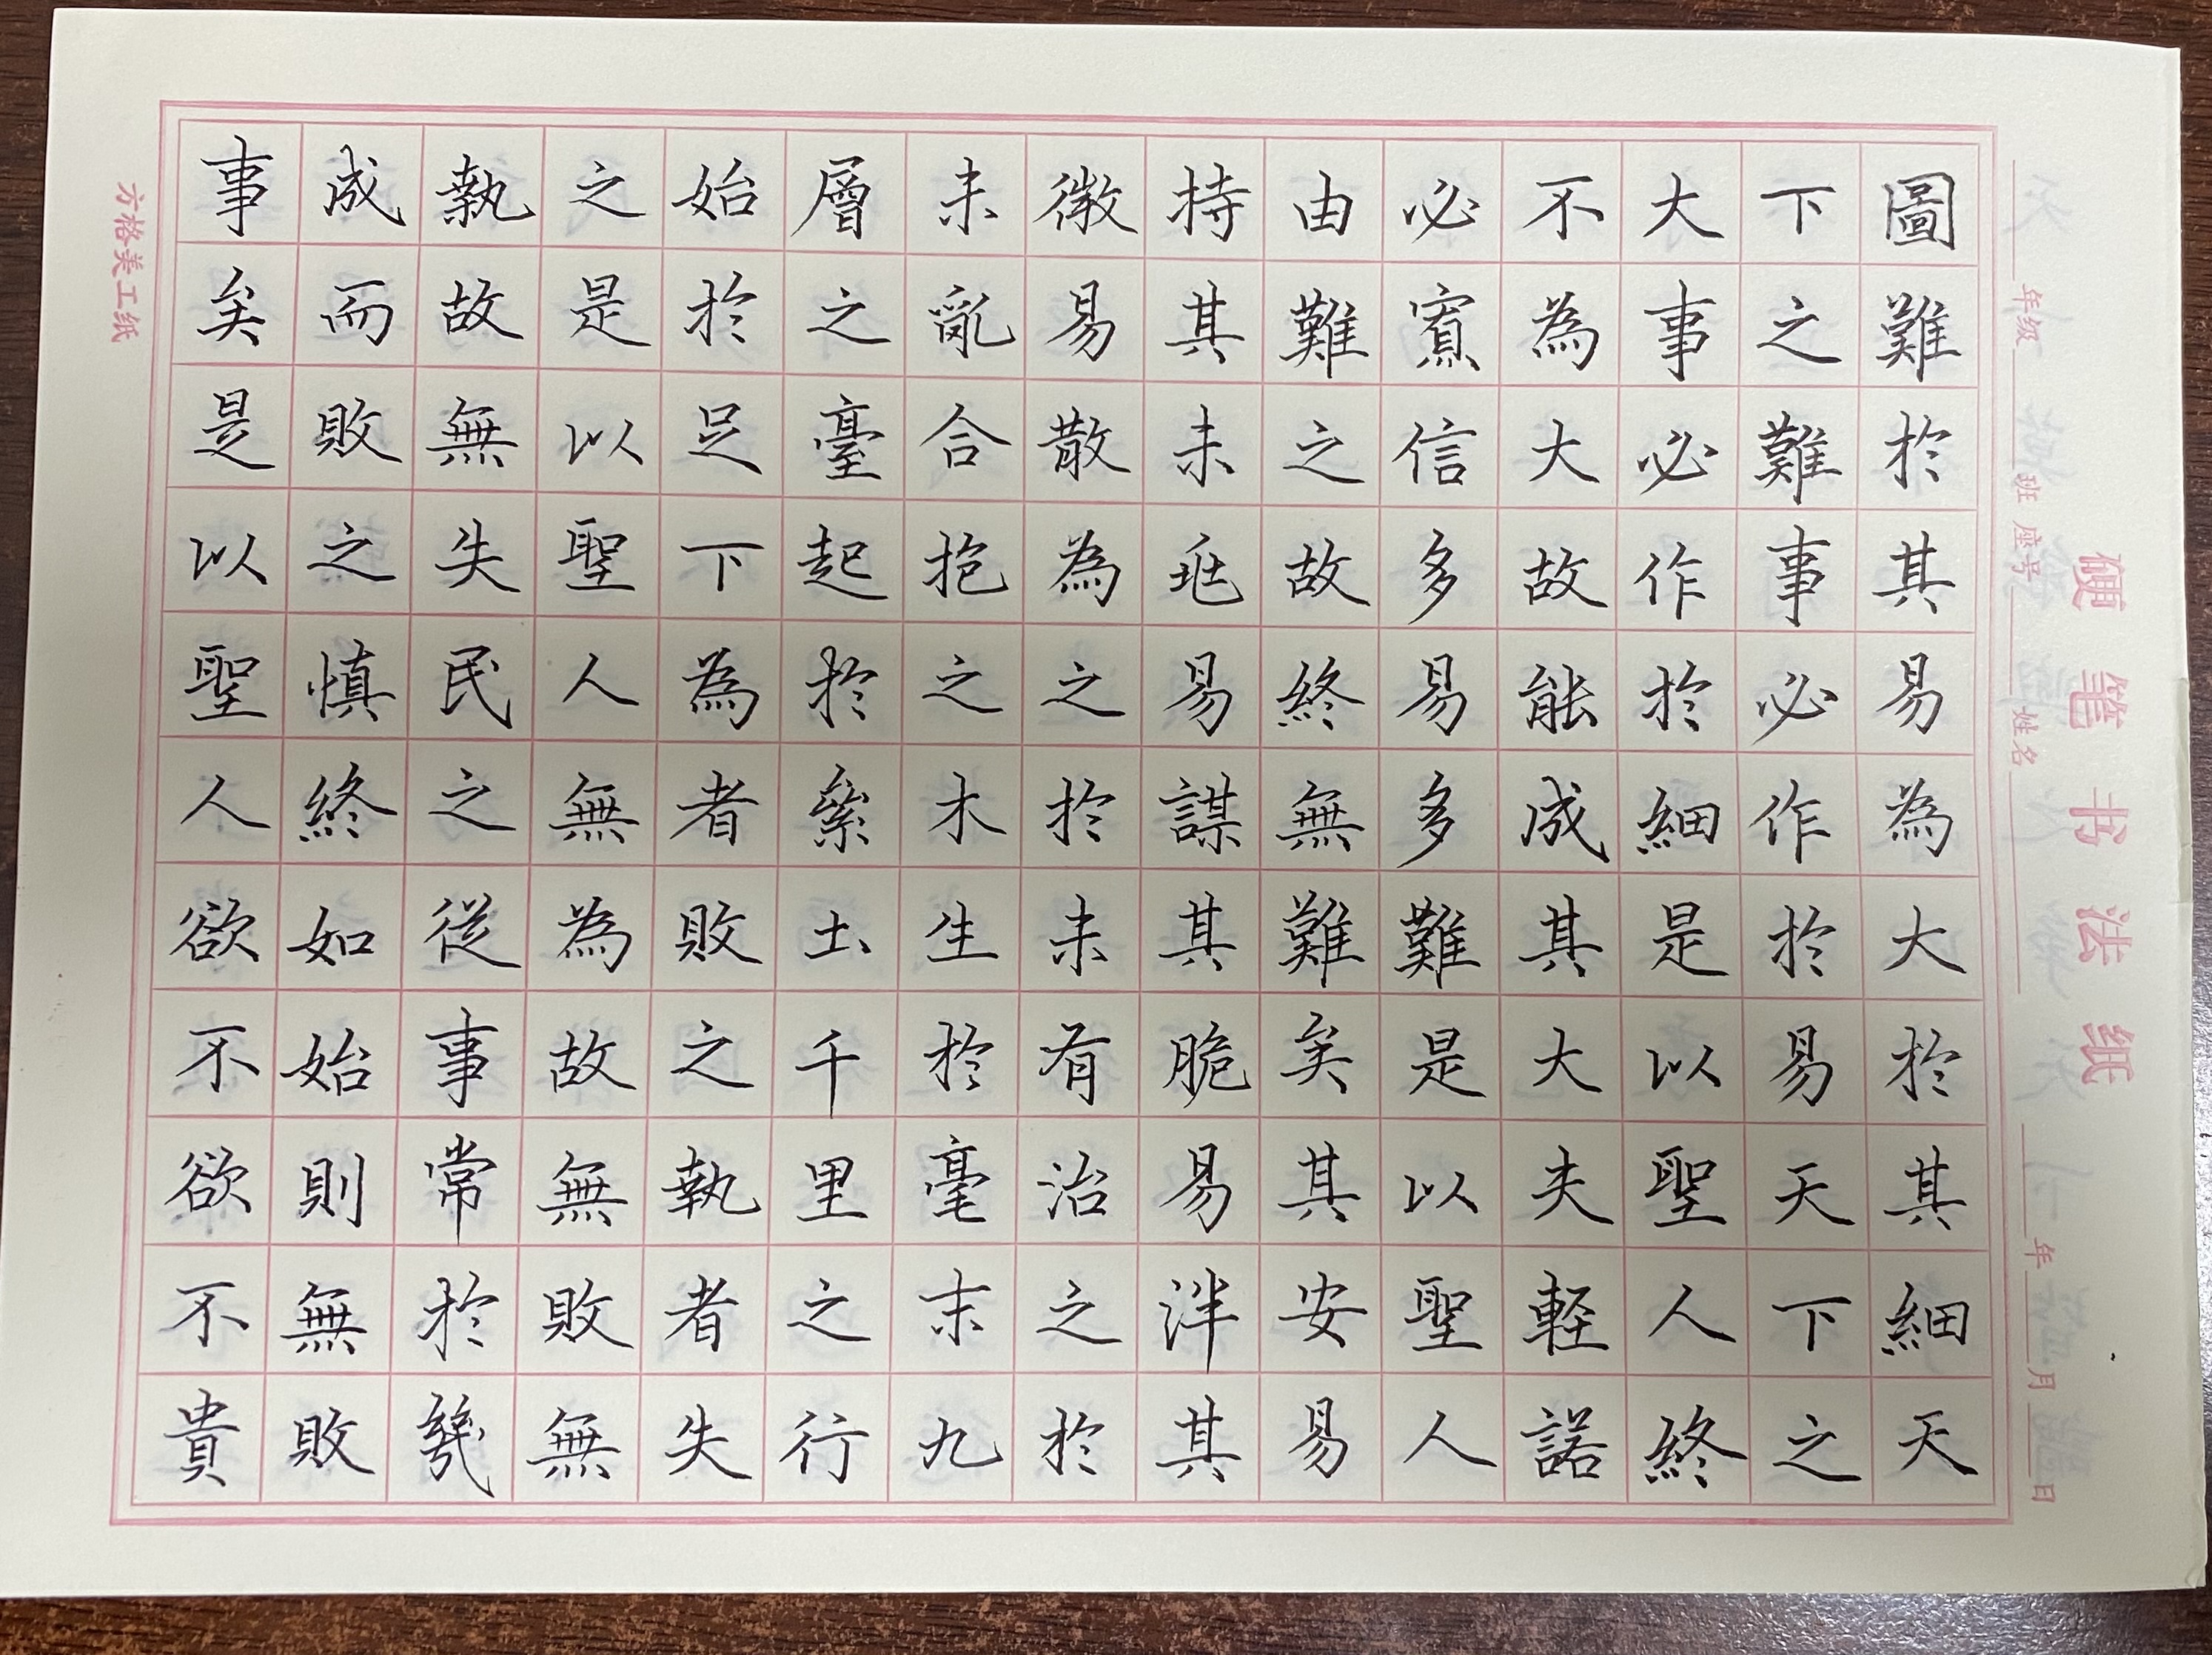 硬笔书法纸
年级 班 座号 姓名 年 月 日
圖難於其易為大於其細天
下之難事必作於易天下之
大事必作於細是以聖人終
不為大故能成其大夫輕諾
必寡信多易多難是以聖人
由難之故終無難矣其安易
持其未兆易謀其脆易泮其
微易散為之於未有治之於
未亂合抱之木生於毫末九
層之臺起於絫土千里之行
始於足下為者敗之執者失
之是以聖人無為故無敗無
執故無失民之從事常於幾
成而敗之慎終如始則無敗
事矣是以聖人欲不欲不貴
方格美工纸